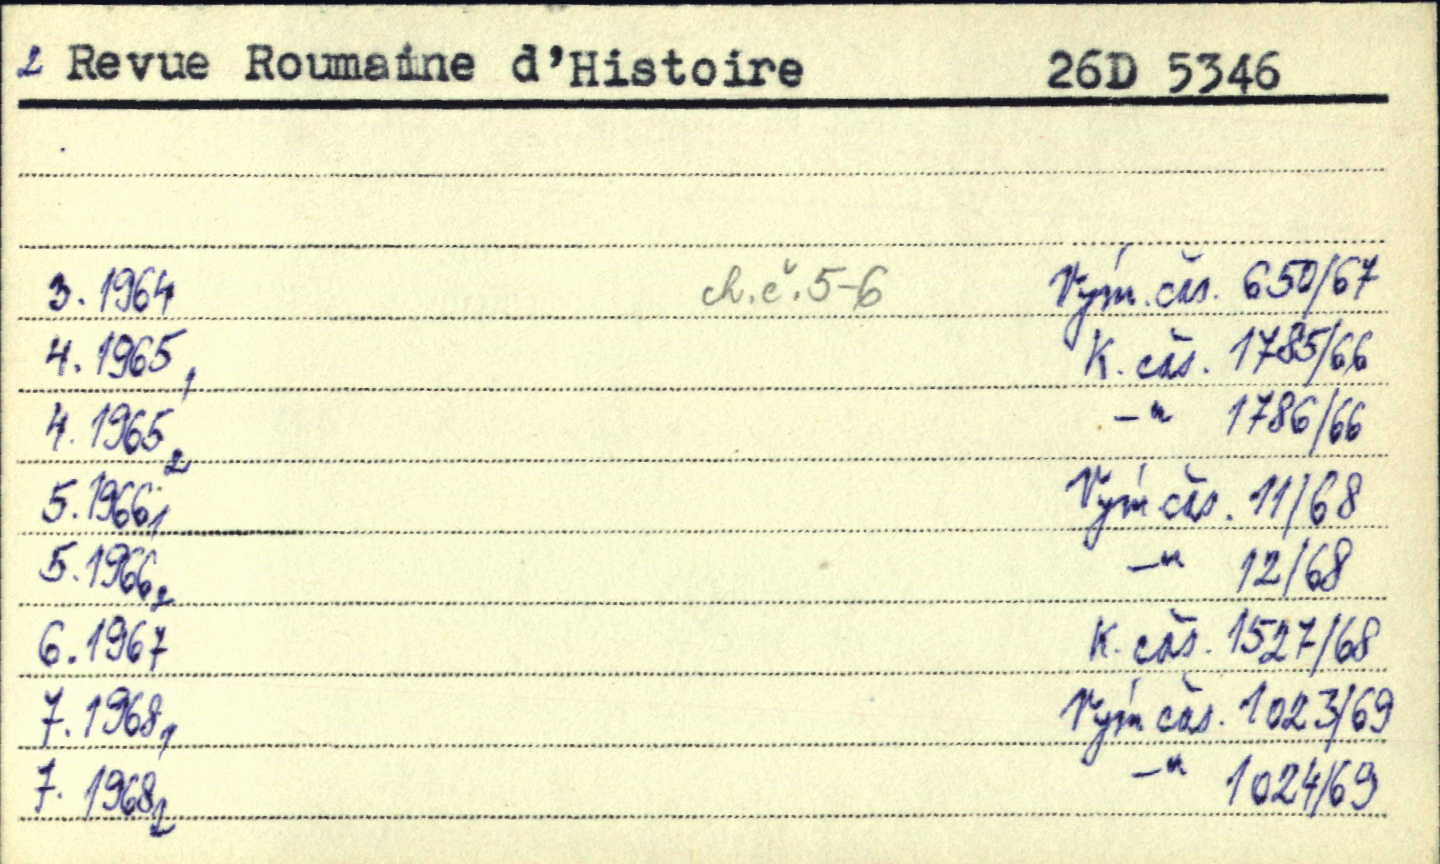 2 Revue Roumaine d'Histoire 26D 5346
3. 1964 ch. č. 5-6 Vým. čas. 650/67
4. 1965,1 K. čas. 1785/66
4. 1965,2 -"- 1786/66
5. 1966,1 Vým čas. 11/68
5. 1966,2 -"- 12/68
6. 1967 K. čas. 1527/68
7. 1968,1 Vým čas. 1023/69
7. 1968,2 -"- 1024/69